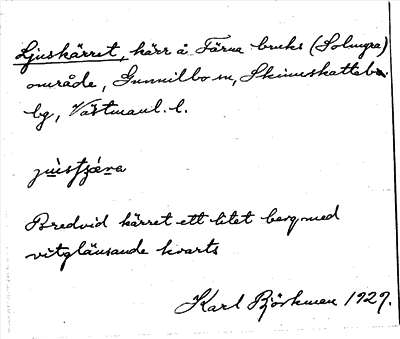 Ljuskärret, kärr å Färna bruks (Solmyra)
område, Gunnilbo sn, Skinnskattebs.
bg, Västmanl. l.
Bredvid kärret ett litet berg med
vitglänsande kvarts
Karl Björkman 1929.